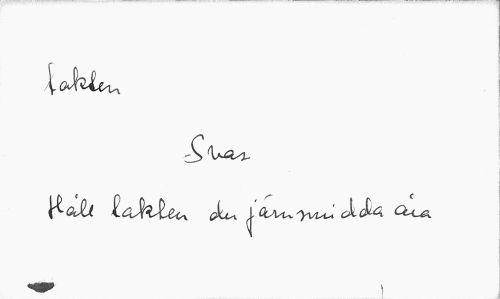 takten
Svar
Håll takten du järnsmidda åra